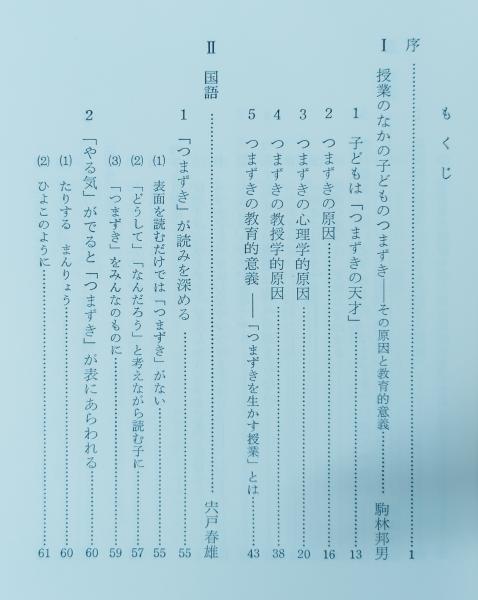 もくじ
序……1
Ⅰ 授業のなかの子どものつまずき――その原因と教育的意義……駒林邦男
1 子どもは「つまずきの天才」……13
2 つまずきの原因……16
3 つまずきの心理学的原因……20
4 つまずきの教授学的原因……38
5 つまずきの教育的意義――「つまずきを生かす授業」とは……43
Ⅱ 国語……宍戸春雄
1 「つまずき」が読みを深める……55
(1) 表面を読むだけでは「つまずき」がない……55
(2) 「どうして」「なんだろう」と考えながら読む子に……57
(3) 「つまずき」をみんなのものに……59
2 「やる気」がでると「つまずき」が表にあらわれる……60
(1) たりする まんりょう……60
(2) ひよこのように……61